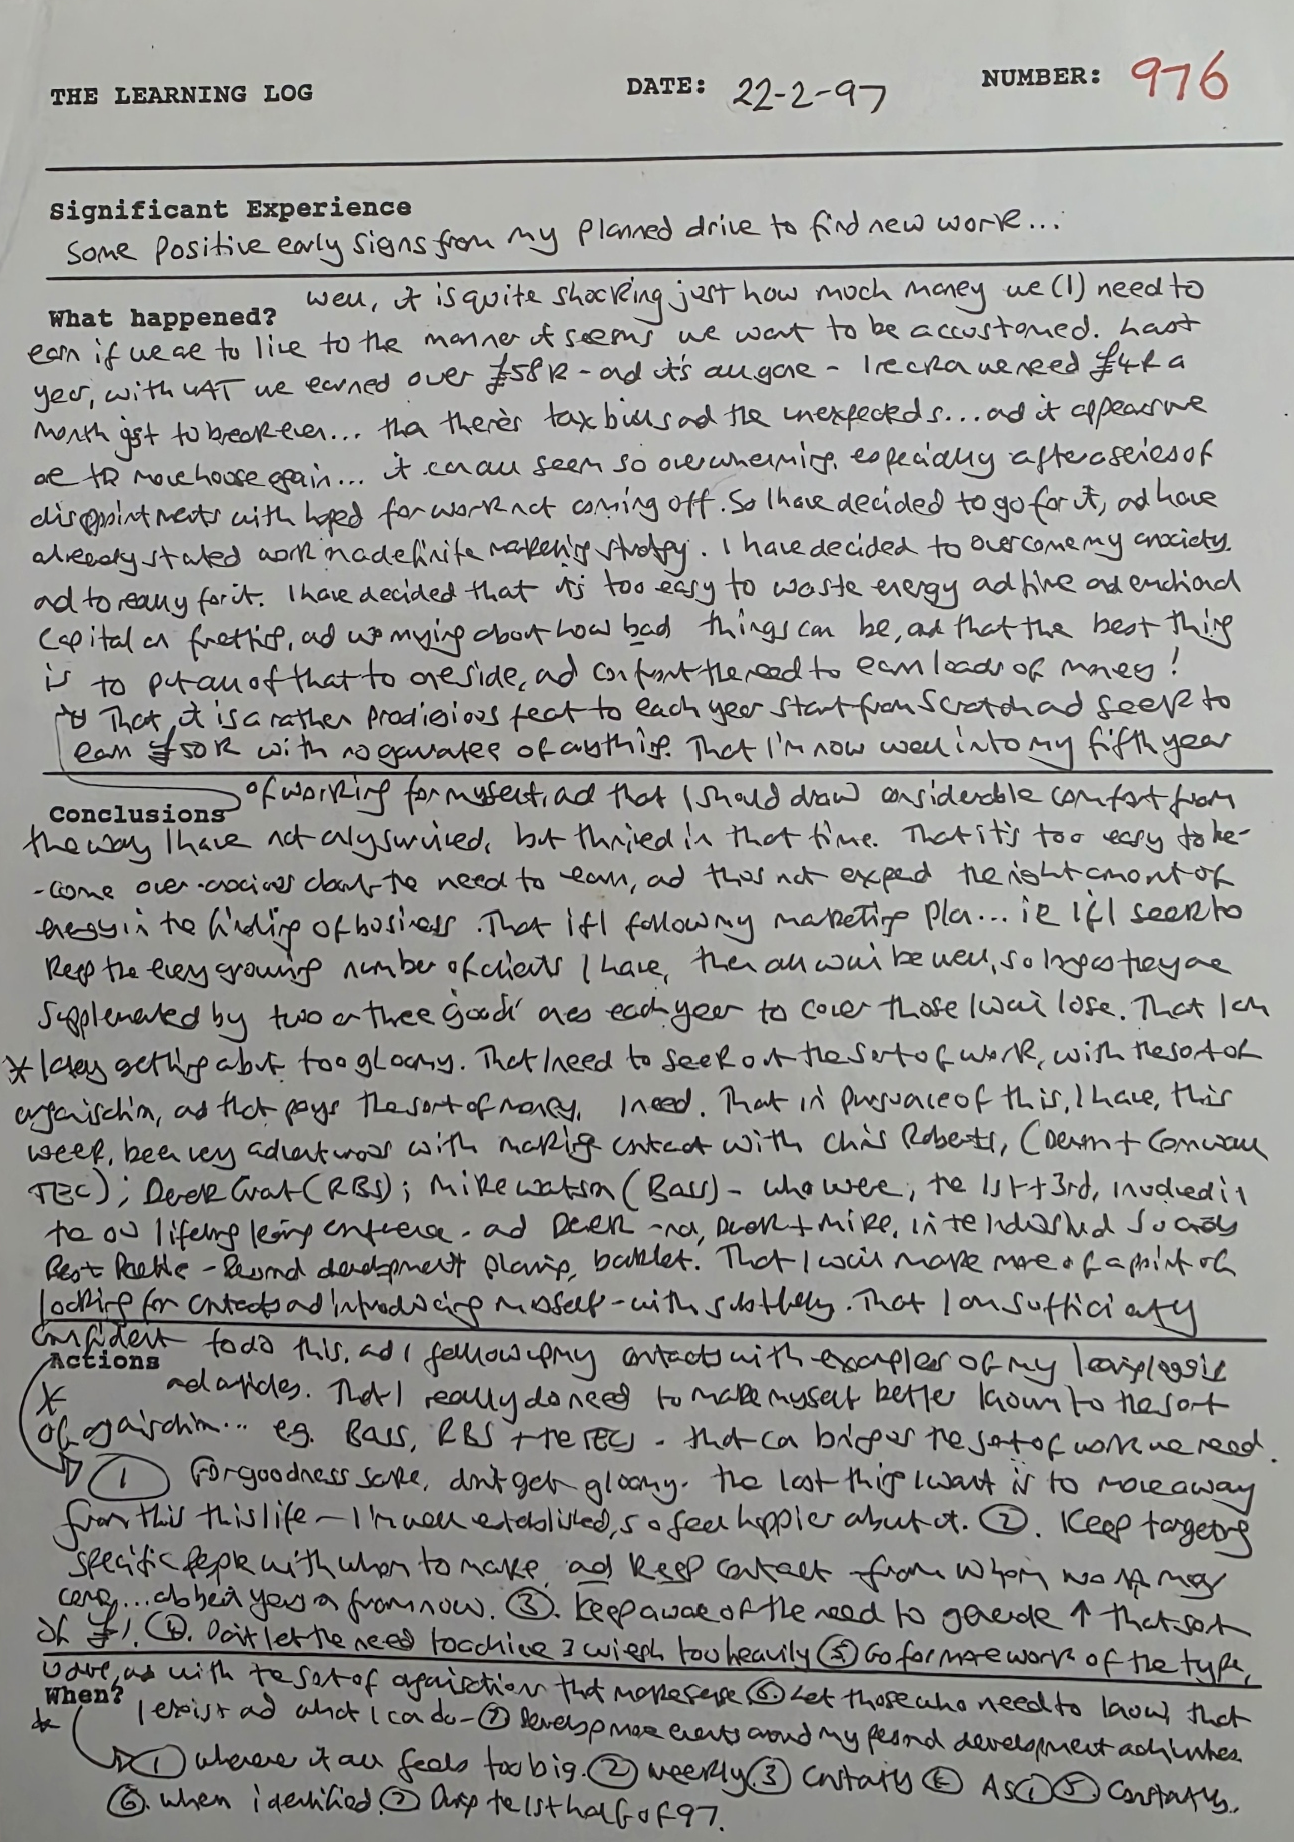 THE LEARNING LOG DATE: 22-2-97 NUMBER: 976
Significant Experience
Some positive early signs from my planned drive to find new work...
What happened? Well, it is quite shocking just how much money we (I) need to
earn if we are to live to the manner it seems we want to be accustomed. Last
year, with VAT we earned over £58K - and it's all gone - I reckon we need £4K a
month just to break even... then there's tax bills and the unexpecteds... and it appears we
are to move house again... it can all seem so overwhelming, especially after a series of
disappointments with hoped for work not coming off. So I have decided to go for it, and have
already started work on a definite marketing strategy. I have decided to overcome my anxiety,
and to really for it. I have decided that it's too easy to waste energy and time and emotional
capital on fretting, and worrying about how bad things can be, and that the best thing
is to put all of that to one side, and confront the need to earn loads of money!
That, it is a rather prodigious feat to each year start from scratch and seek to
earn £50K with no guarantee of anything. That I'm now well into my fifth year
of working for myself, and that I should draw considerable comfort from
Conclusions
the way I have not only survived, but thrived in that time. That it's too easy to be-
-come over-anxious about the need to earn, and thus not expend the right amount of
energy in the finding of business. That if I follow my marketing plan... ie if I seek to
keep the every growing number of clients I have, then all will be well, so long as they are
supplemented by two or three 'good' ones each year to cover those I will lose. That I am
* getting about too gloomy. That I need to seek out the sort of work, with the sort of
organisation, and that pays the sort of money, I need. That in pursuance of this, I have, this
week, been very adventurous with making contact with Chris Roberts, (Devon + Cornwall
TEC); Derek Grat (RBS); Mike Watson (Bass) - who were, the 1st + 3rd, involved in
the our lifelong learning conference - and Derek and, Derek + Mike, in the Industrial Society
Best Practice - Personal development planning, booklet. That I will make more of a point of
looking for contacts and introducing myself - with subtlety. That I am sufficiently
confident to do this, and I follow up my contacts with examples of my learning logs
Actions
* and articles. That I really do need to make myself better known to the sort
of organisation... eg. Bass, RBS + the TECs - that can bring us the sort of work we need.
① For goodness sake, don't get gloomy. The last thing I want is to move away
from this this life - I'm well established, so feel happier about it. ②. Keep targeting
specific people with whom to make, and keep contact - from whom work may
come... albeit years on from now. ③. Keep aware of the need to generate ↑ that sort
of £1. ④. Don't let the need to achieve 3 weigh too heavily ⑤ Go for more work of the type,
and with the sort of organisation that makes sense ⑥ Let those who need to know, that
When?
* I exist and what I can do - ⑦ Develop more events around my personal development activities.
① Whenever it all feels too big. ② Weekly ③ Constantly ④ As ① ⑤ Constantly.
⑥. When identified. ⑦ During the 1st half of 97.